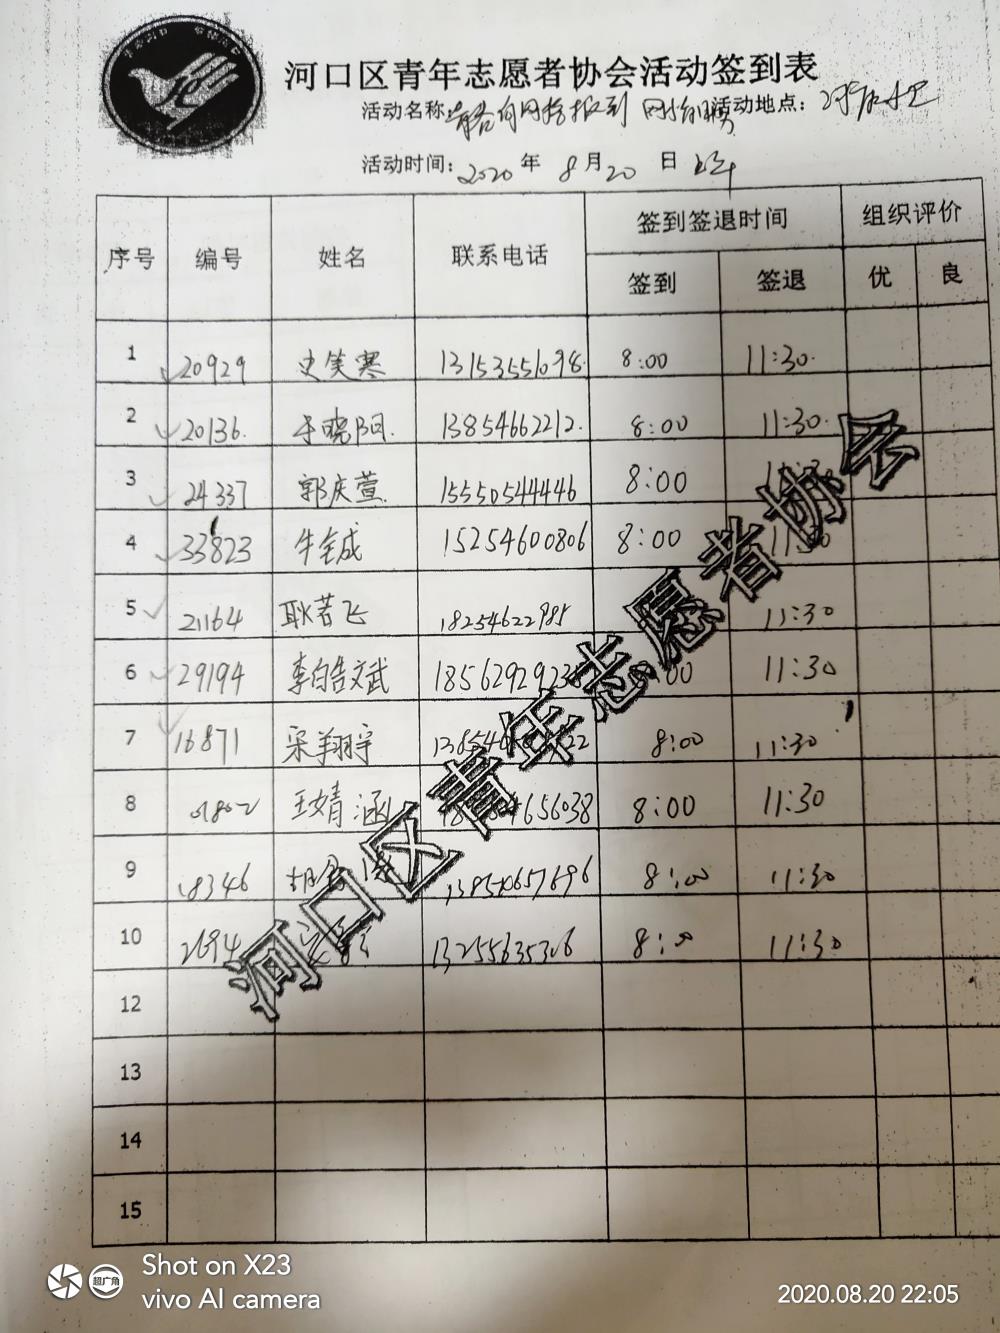 河口区青年志愿者协会活动签到表
活动名称: 青春向网格报到 活动地点:
活动时间: 2020 年 8 月 20 日 上午
序号 编号 姓名 联系电话 签到签退时间 组织评价
签到 签退 优 良
1 20929 史笑寒 13153551098 8:00 11:30
2 20136 于晓阳 13854662212 8:00 11:30
3 24337 郭庆萱 15550544446 8:00
4 33823 牛钰成 15254600806 8:00 11:30
5 21164 耿若飞 18254622985 11:30
6 29194 李皓文武 11:30
7 16871 8:00 11:30
8 王婧涵 8:00 11:30
9 18346 8:00 11:30
10 13255635306 8:00 11:30
12
13
14
15
河口区青年志愿者协会
Shot on X23
超广角
vivo AI camera
2020.08.20 22:05